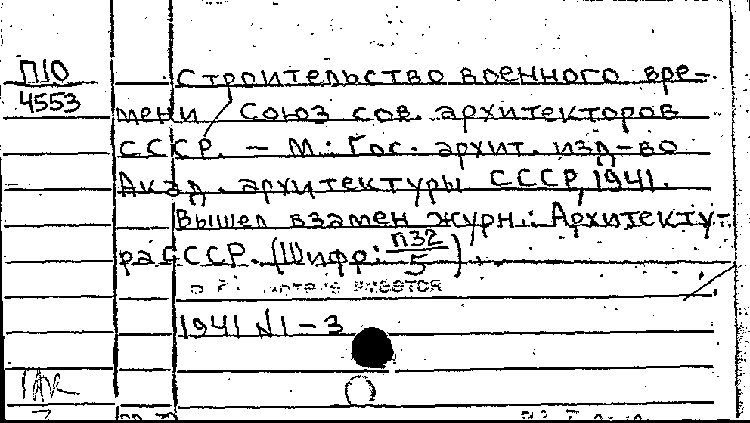 П10
4553
Строительство военного вре-
мени / Союз сов. архитекторов
СССР. – М.: Гос. архит. изд-во
Акад. архитектуры СССР, 1941.
Вышел взамен журн.: Архитекту-
ра СССР. (Шифр: П32/5).
имеется
1941 №1-3